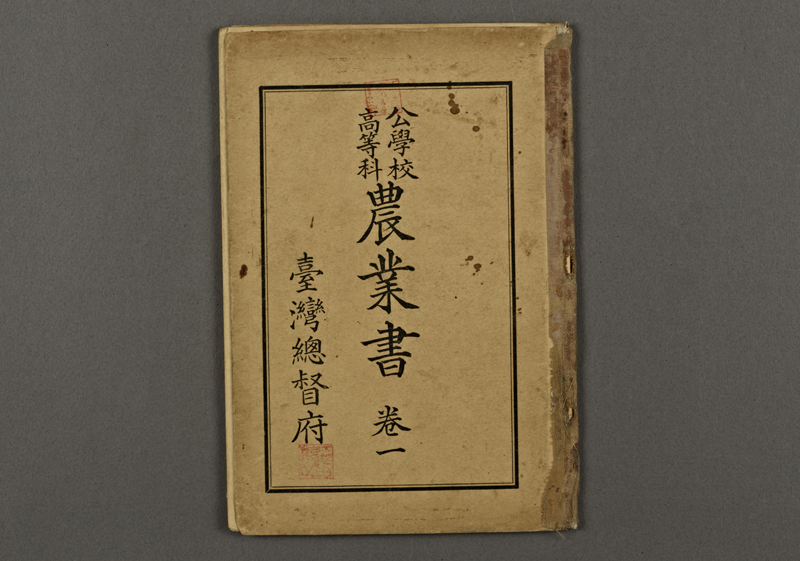 公學校
高等科
農業書 卷一
臺灣總督府